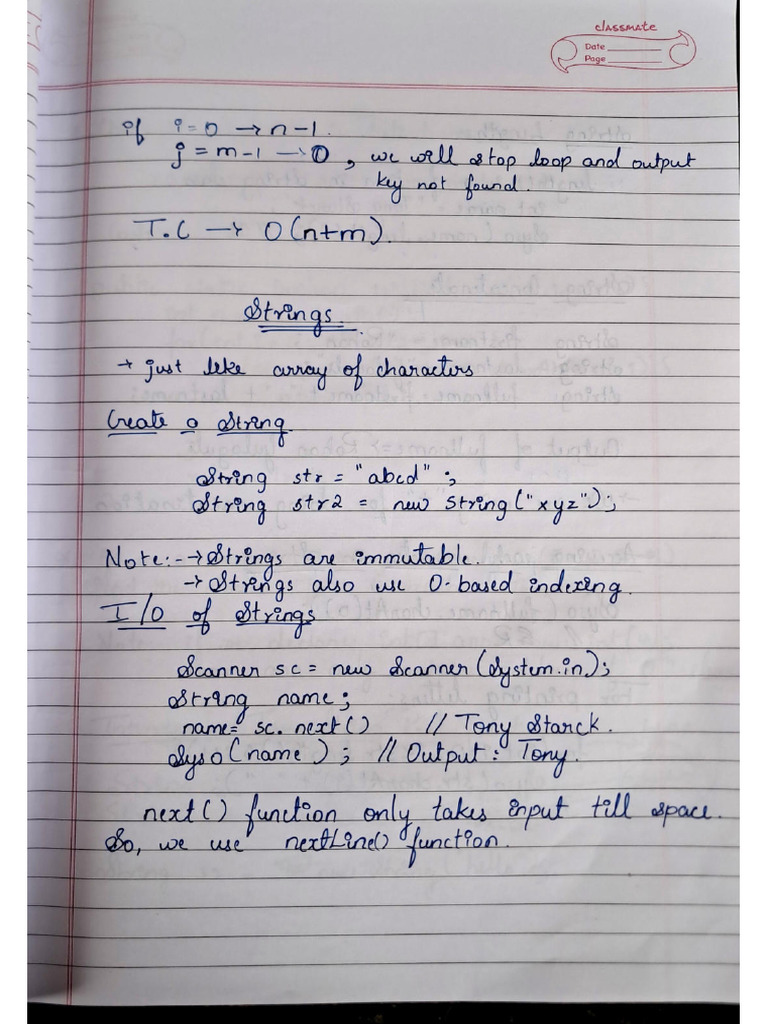 classmate
Date
Page
if i=0 → n-1.
j = m-1 → 0, we will stop loop and output
key not found.
T.C → O(n+m).
Strings.
→ just like array of characters
Create a String
String str = "abcd" ;
String str2 = new String("xyz");
Note:- → Strings are immutable.
→ Strings also use 0-based indexing.
I/O of Strings
Scanner sc = new Scanner(System.in);
String name;
name= sc. next() // Tony Starck.
Syso(name) ; // Output : Tony.
next() function only takes input till space.
So, we use nextLine() function.